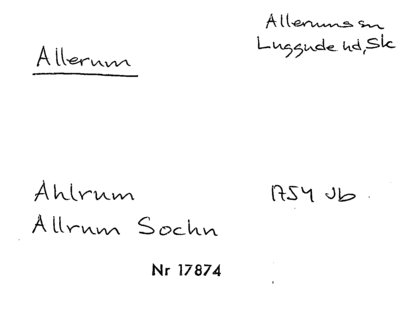 Allerums sn
Luggude hd, Sk
Allerum
Ahlrum 1754 Jb
Allrum Sochn
Nr 17874